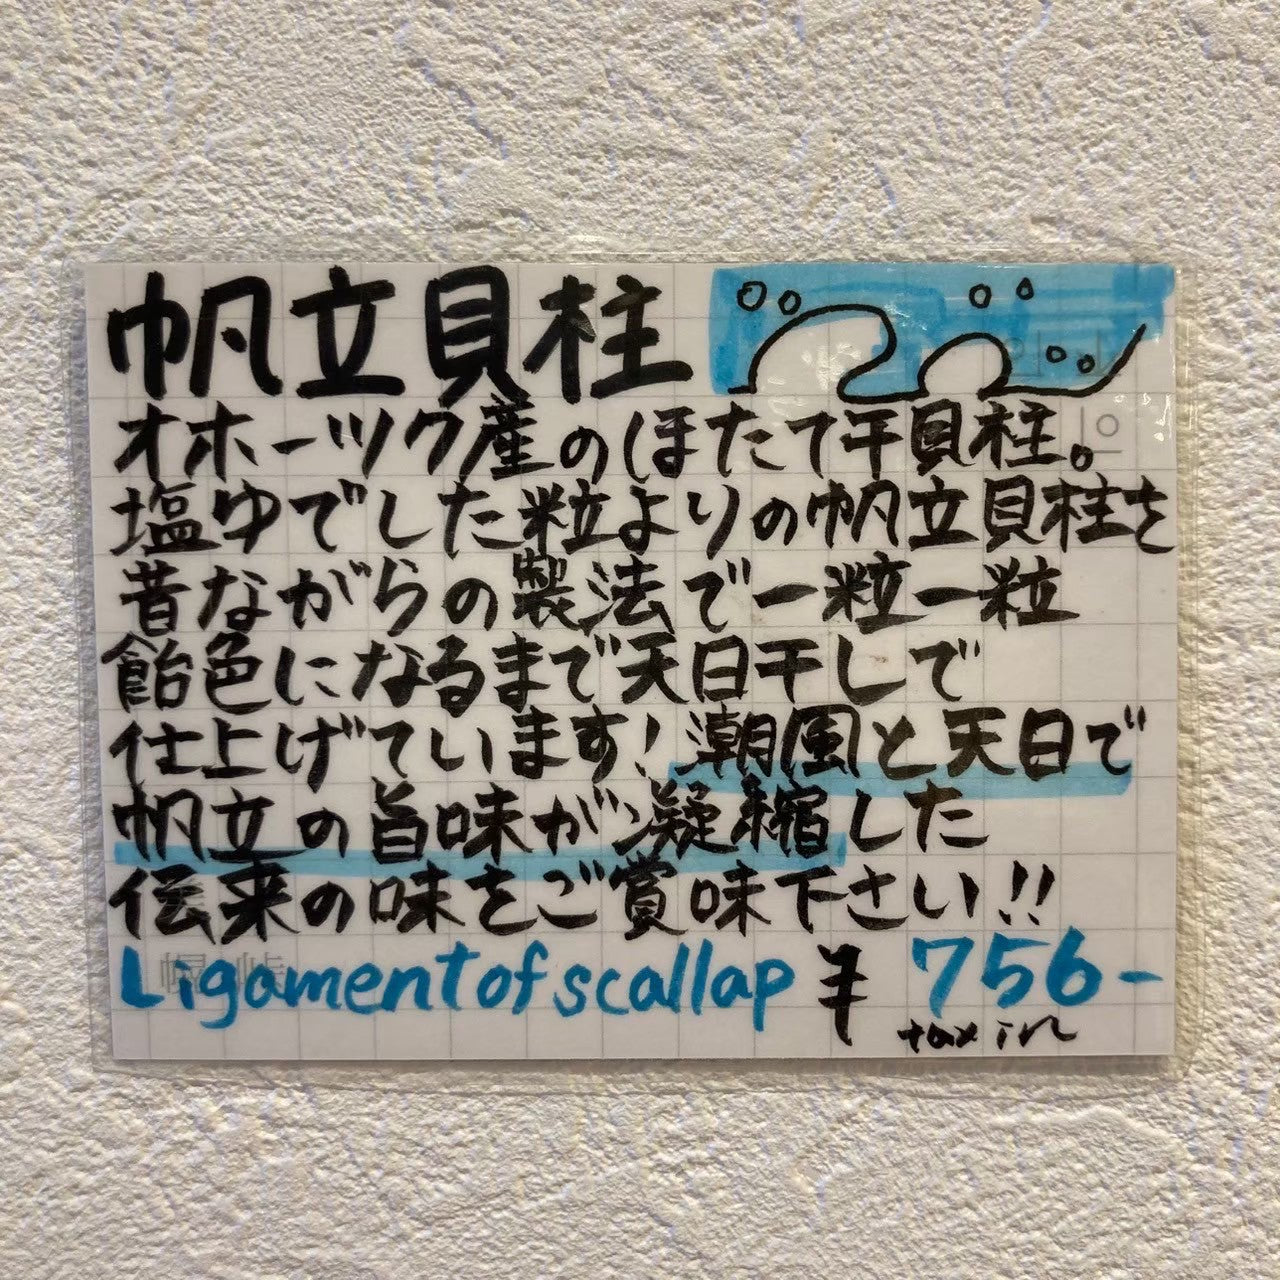 帆立貝柱
オホーツク産のほたて干貝柱。
塩ゆでした粒よりの帆立貝柱を
昔ながらの製法で一粒一粒
飴色になるまで天日干しで
仕上げています!潮風と天日で
帆立の旨味が凝縮した
伝来の味をご賞味下さい!!
Ligament of scallap ¥756-
tax in